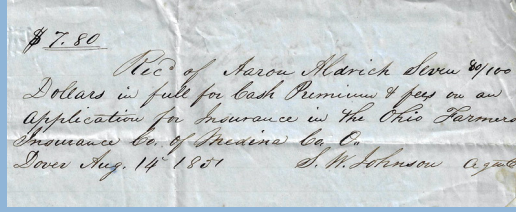 $ 7.80
Rec'd of Aaron Aldrich Seven 80/100
Dollars in full for Cash Premium & fees on an
application for Insurance in the Ohio Farmers
Insurance Co. of Medina Co. O.
Dover Aug. 14 1851 S. W. Johnson Agent